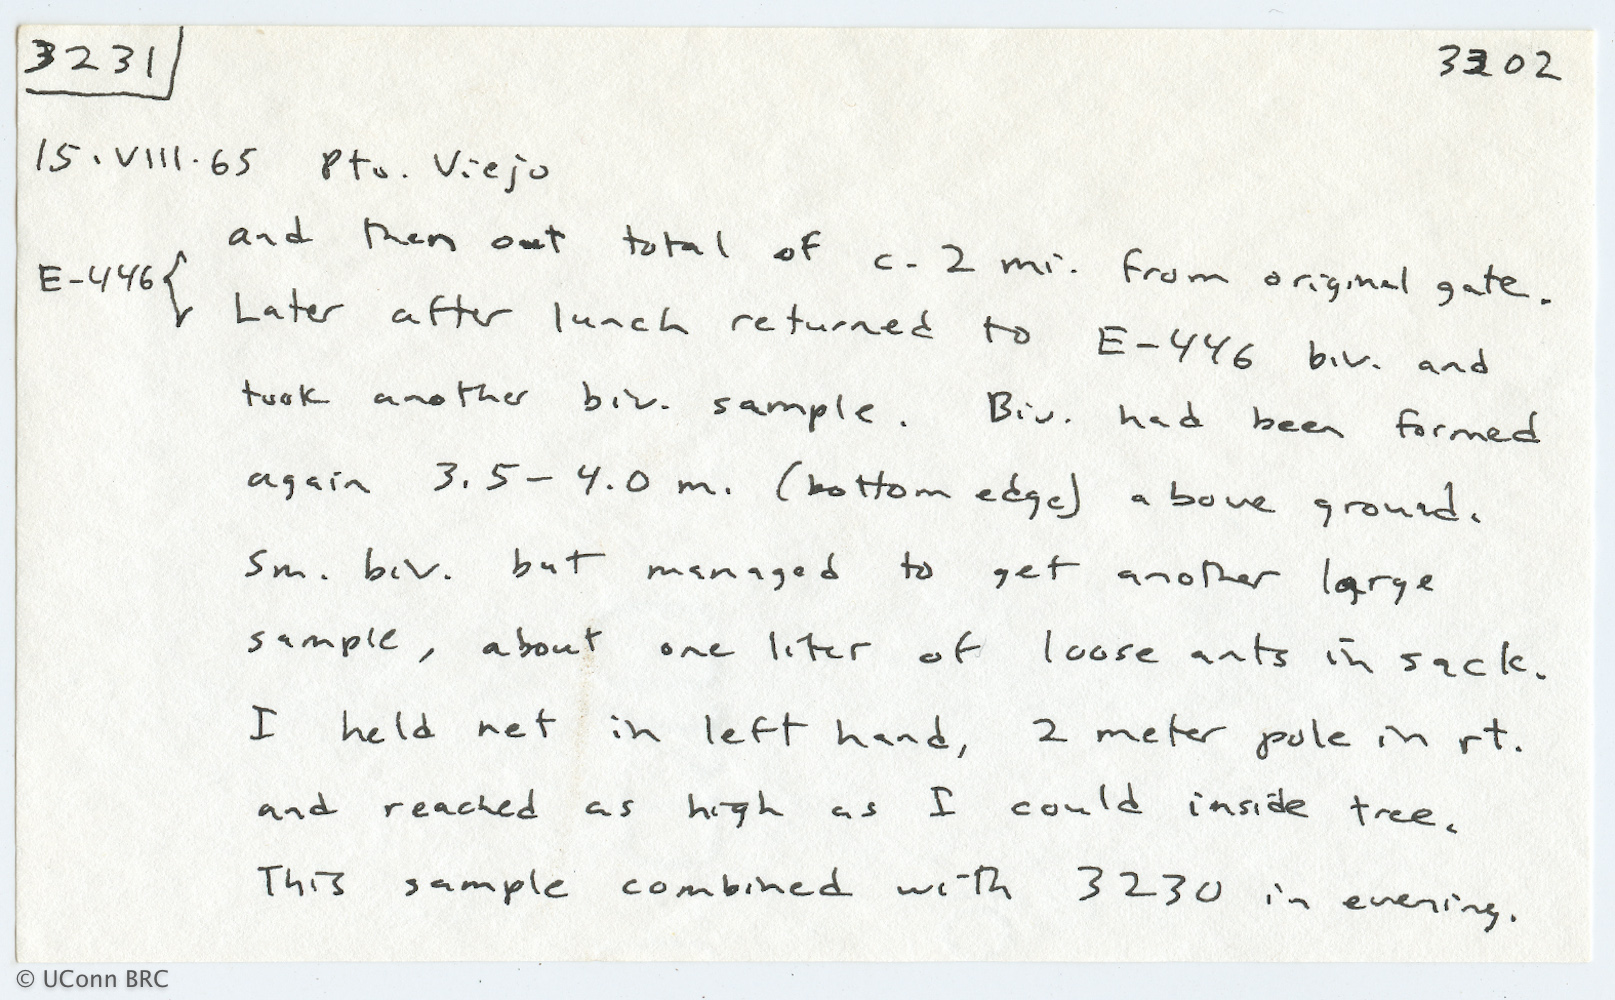 3231
3202
15.VIII.65 Pto. Viejo
and then out total of c. 2 mi. from original gate.
E-446{
Later after lunch returned to E-446 biv. and
took another biv. sample. Biv. had been formed
again 3.5-4.0 m. (bottom edge) above ground.
Sm. biv. but managed to get another large
sample, about one liter of loose ants in sack.
I held net in left hand, 2 meter pole in rt.
and reached as high as I could inside tree.
This sample combined with 3230 in evening.
© UConn BRC